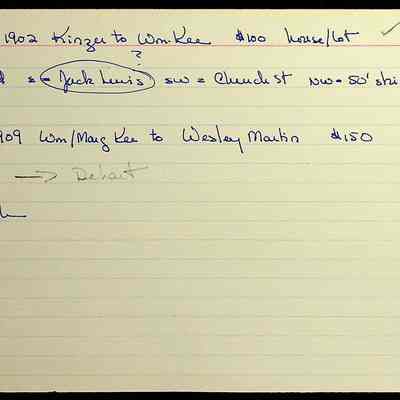 1902 Kinzer to Wm. Kee $100 house/lot ✓
?
Jack Lewis SW = Church St NW = 50'
909 Wm/Marg Kee to Wesley Martin $150
→